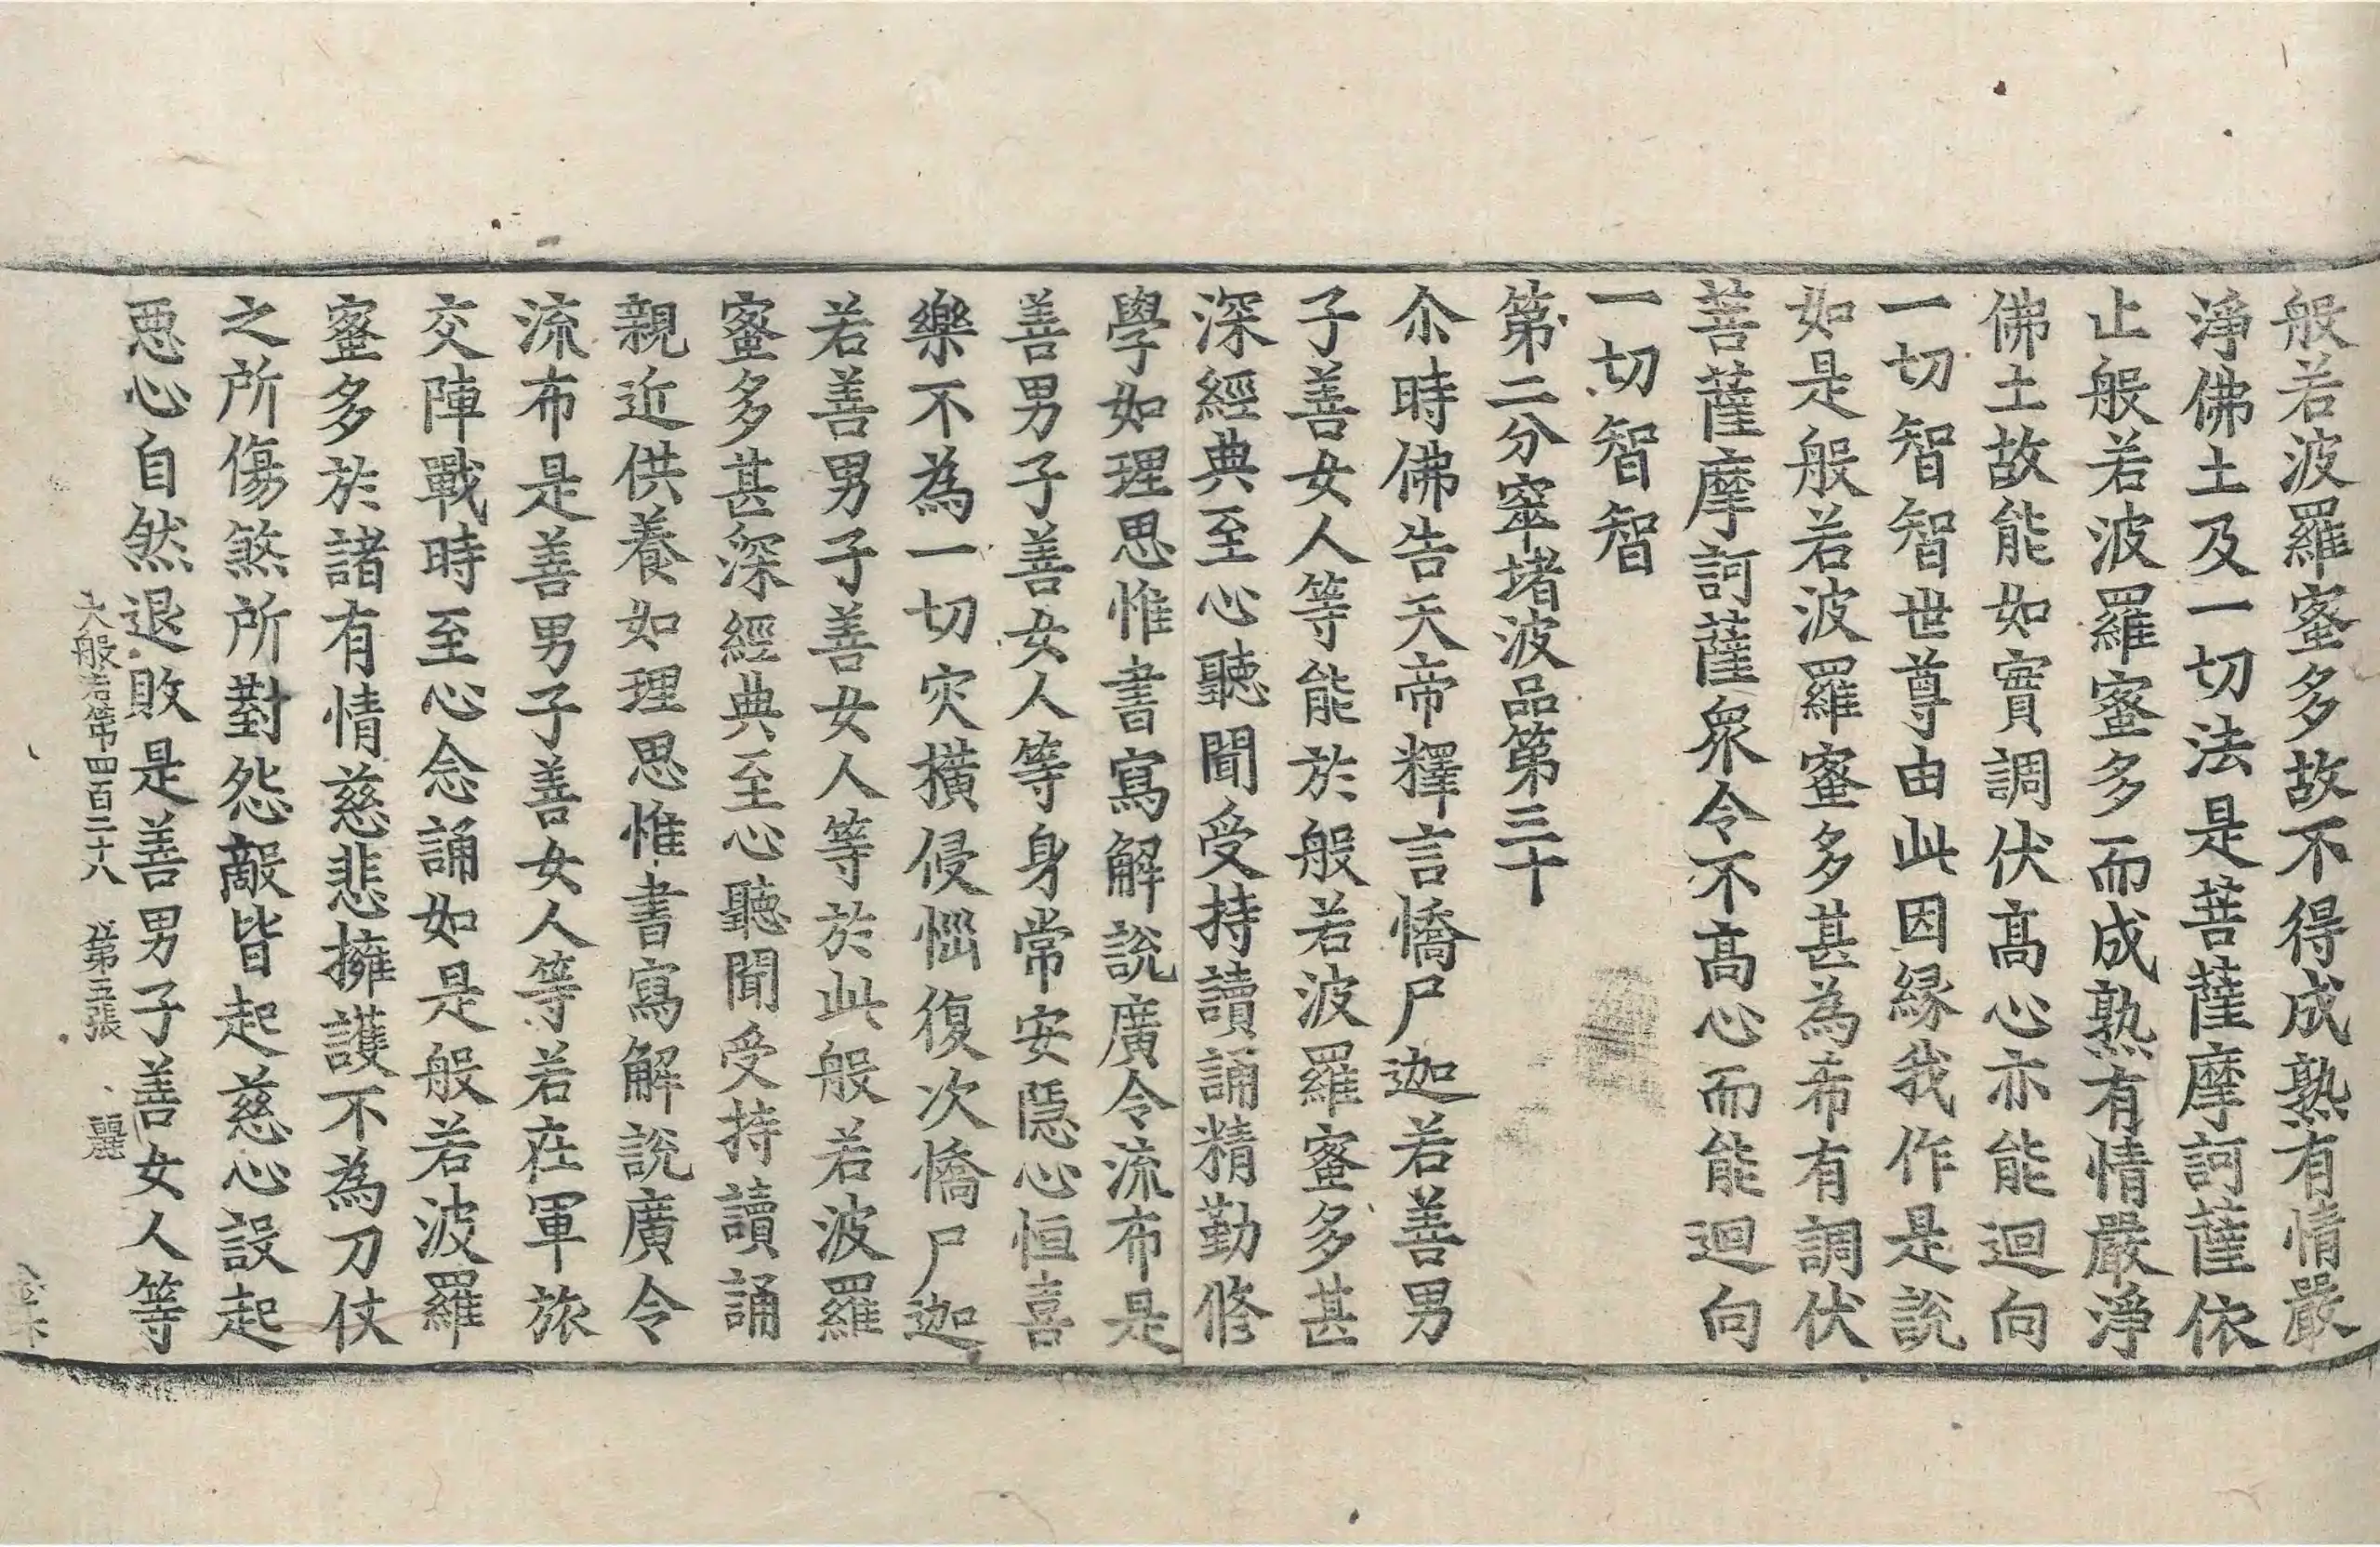 般若波羅蜜多故不得成熟有情嚴
淨佛土及一切法是菩薩摩訶薩依
止般若波羅蜜多而成熟有情嚴淨
佛土故能如實調伏髙心亦能迴向
一切智智世尊由此因緣我作是說
如是般若波羅蜜多甚為希有調伏
菩薩摩訶薩衆令不髙心而能迴向
一切智智
第二分窣堵波品第三十
尒時佛告天帝釋言憍尸迦若善男
子善女人等能於般若波羅蜜多甚
深經典至心聽聞受持讀誦精勤修
學如理思惟書寫解說廣令流布是
善男子善女人等身常安隱心恒喜
樂不為一切灾橫侵惱復次憍尸迦
若善男子善女人等於此般若波羅
蜜多甚深經典至心聽聞受持讀誦
親近供養如理思惟書寫解說廣令
流布是善男子善女人等若在軍旅
交陣戰時至心念誦如是般若波羅
蜜多於諸有情慈悲擁護不為刀仗
之所傷煞所對怨敵皆起慈心設起
惡心自然退敗是善男子善女人等
大般若第四百二十八 第五張 麗